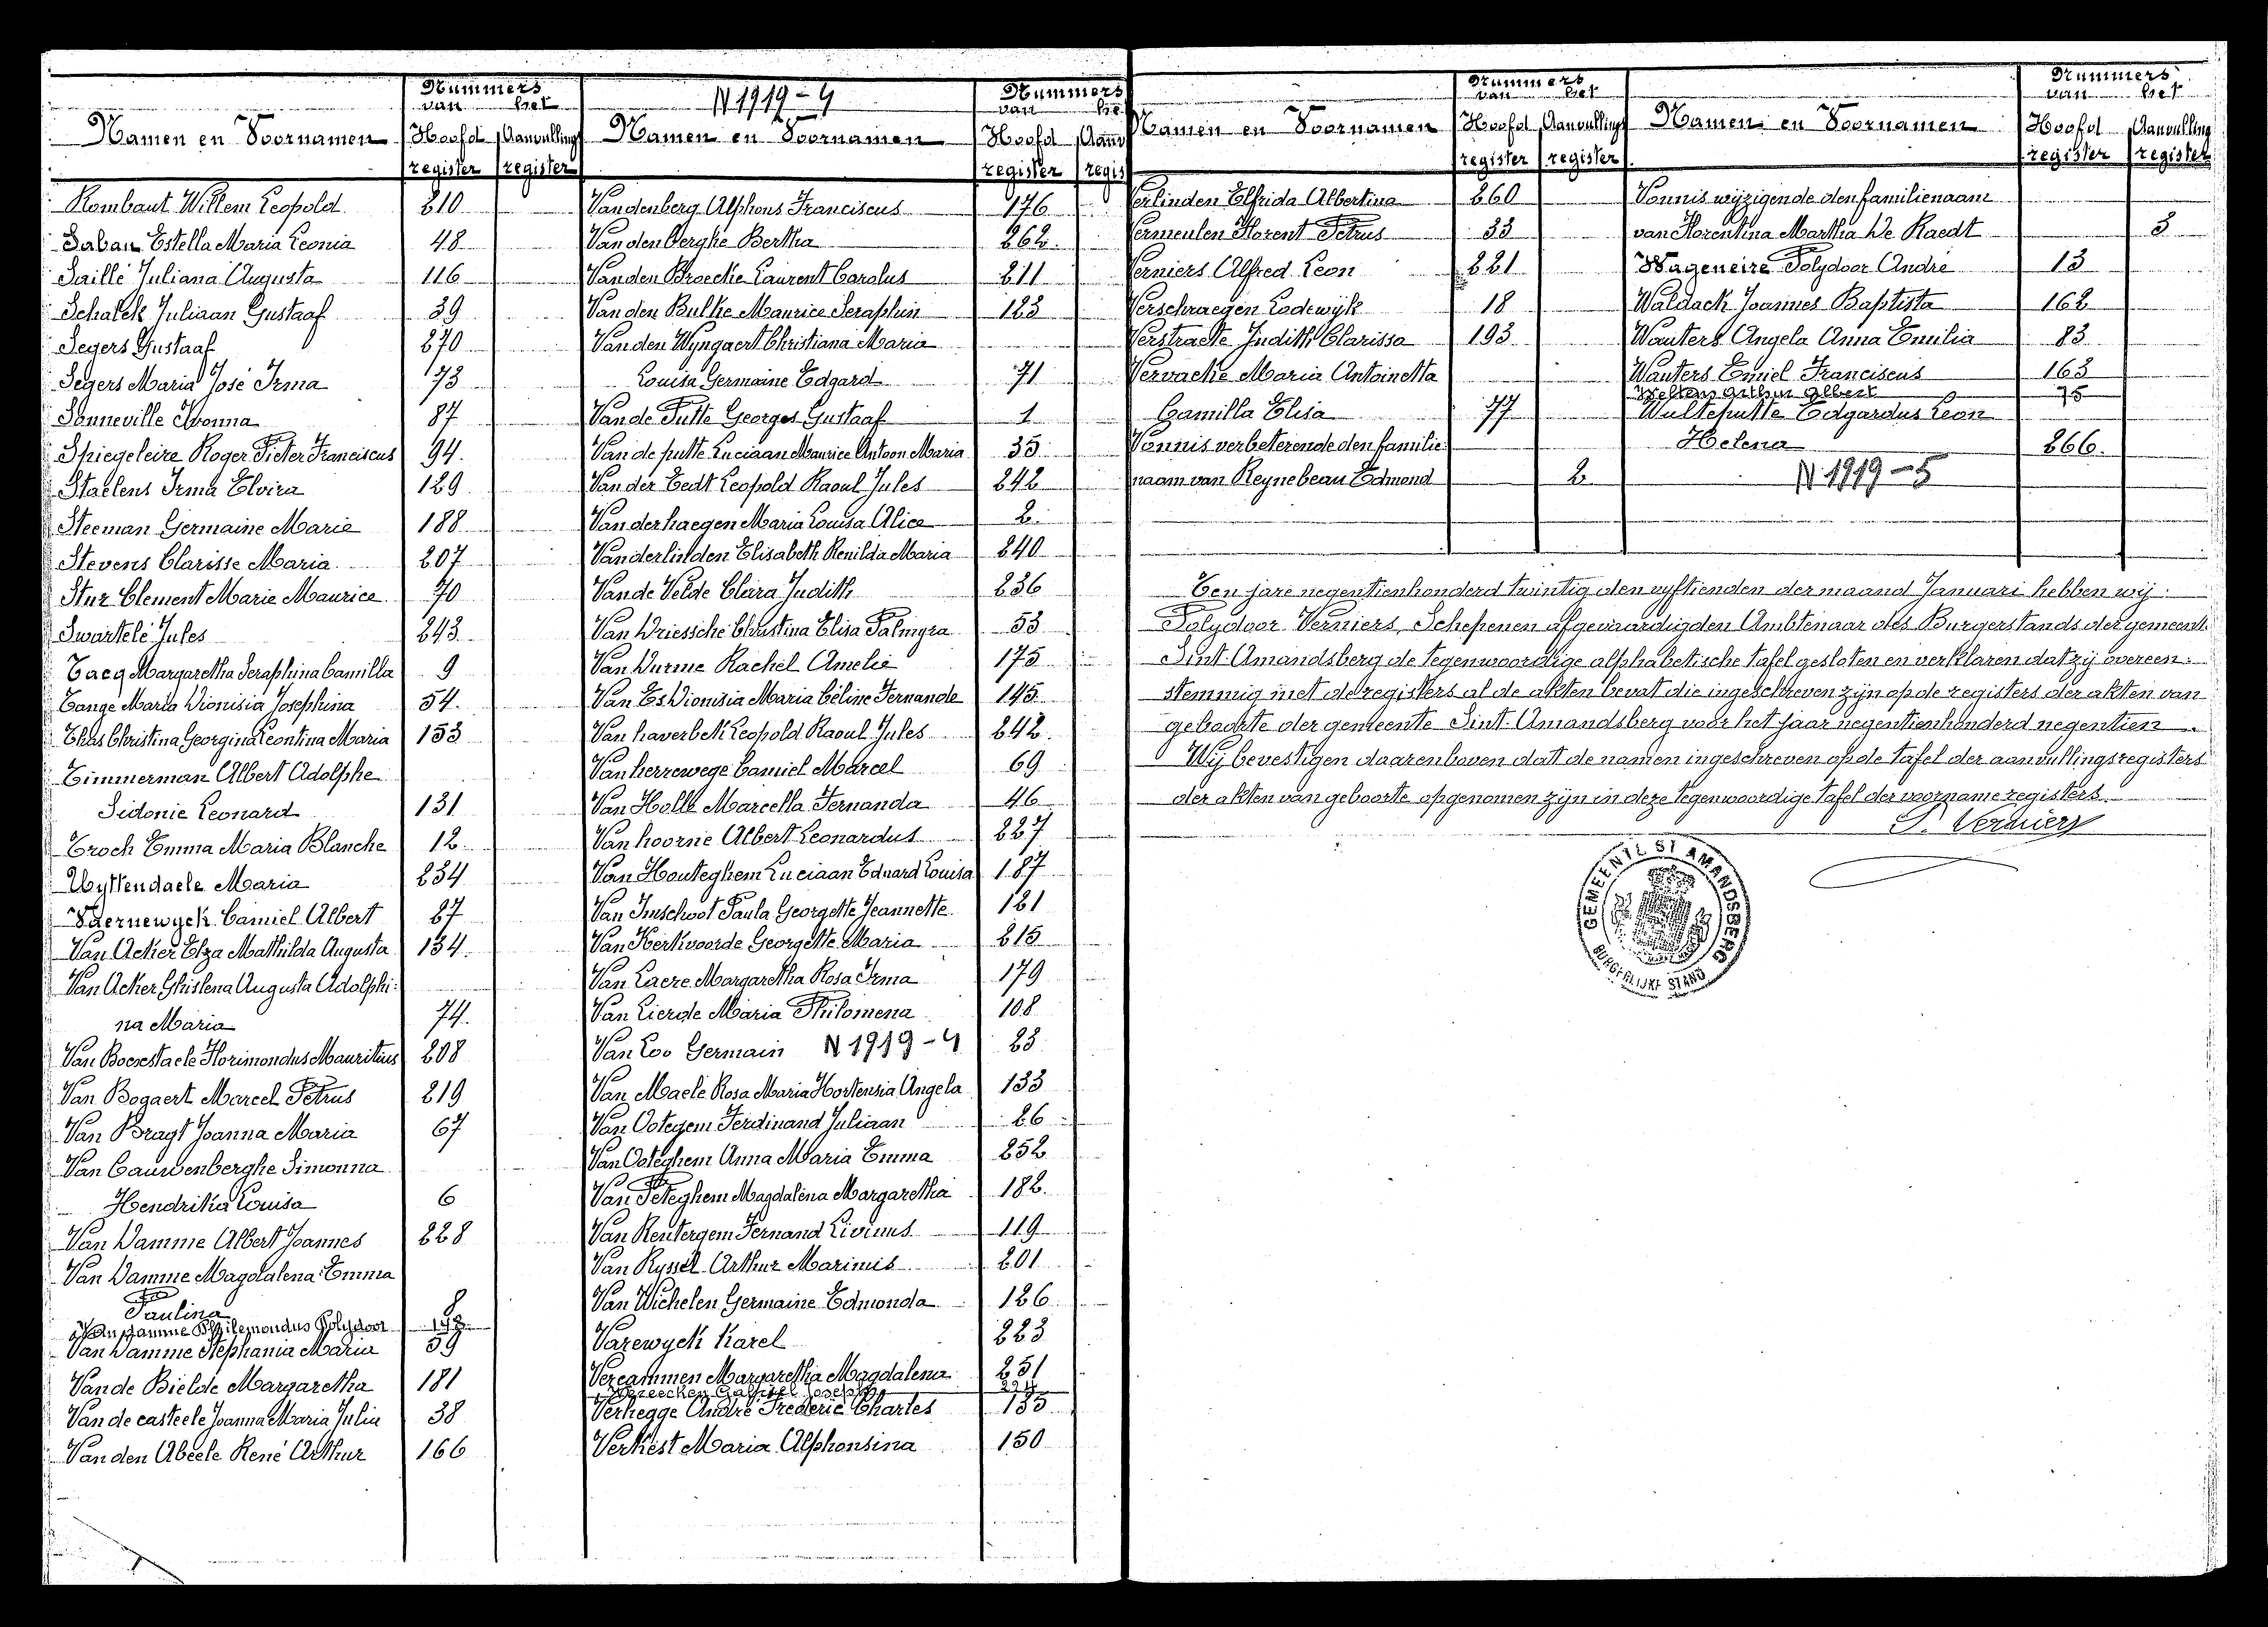 Nummers
van het
Namen en Voornamen Hoofd Aanvulling
register register
Rombaut Willem Leopold 210
Saban Estella Maria Leonia 48
Saille Juliana Augusta 116
Schalck Juliaan Gustaaf 39
Segers Gustaaf 270
Segers Maria José Irma 73
Sonneville Ivonna 87
Spiegeleire Roger Pieter Franciscus 94
Staelens Irma Elvira 129
Steeman Germaine Marie 188
Stevens Clarisse Maria 207
Stur Clement Marie Maurice 70
Swartelé Jules 243
Tacq Margaretha Seraphina Camilla 9
Tange Maria Dionisia Josephina 54
Thas Christina Georgina Leontina Maria 153
Timmerman Albert Adolphe
Sidonie Leonard 131
Troch Emma Maria Blanche 12
Uyttendaele Maria 234
Vaernewyck Camiel Albert 27
Van Acker Elza Mathilda Augusta 134
Van Acker Ghislena Augusta Adolphi:
na Maria 74
Van Boexstaele Florimondus Mauritius 208
Van Bogaert Marcel Petrus 219
Van Bragt Joanna Maria 67
Van Cauwenberghe Simonna
Hendrika Louisa 6
Van Damme Albert Joannes 228
Van Damme Magdalena Emma
Paulina 8
Van Damme Philemondus Polydoor 148
Van Damme Stephania Maria 59
Van de Bielde Margaretha 181
Van de casteele Joanna Maria Julia 38
Van den Abeele René Arthur 166
N 1919-4
Nummers
van het
Namen en Voornamen Hoofd Aanv
register regis
Vandenberg Alphons Franciscus 176
Van den berghe Bertha 262
Van den Broecke Laurent Carolus 211
Van den Bulke Maurice Seraphin 123
Van den Wyngaert Christiana Maria
Louisa Germaine Edgard 71
Van de Putte Georges Gustaaf 1
Van de putte Luciaan Maurice Antoon Maria 35
Van der Eedt Leopold Raoul Jules 242
Van der haegen Maria Louisa Alice 2
Van der linden Elisabeth Renilda Maria 240
Van de Velde Clara Judith 236
Van Driessche Christina Elisa Palmyra 53
Van Durme Rachel Amelie 175
Van Es Dionisia Maria Céline Fernande 145
Van haverbek Leopold Raoul Jules 242
Van herrewege Camiel Marcel 69
Van Holle Marcella Fernanda 46
Van hoorne Albert Leonardus 227
Van Houteghem Luciaan Eduard Louisa 187
Van Imschoot Paula Georgette Jeannette 121
Van Kerkvoorde Georgette Maria 215
Van Laere Margaretha Rosa Irma 179
Van Lierde Maria Philomena 108
Van Loo Germain N 1919-4 23
Van Maele Rosa Maria Hortensia Angela 133
Van Ootegem Ferdinand Juliaan 26
Van Ooteghem Anna Maria Emma 252
Van Peteghem Magdalena Margaretha 182
Van Rentergem Fernand Livinus 119
Van Ryssel Arthur Marinus 201
Van Wichelen Germaine Edmonda 126
Varewyck Karel 223
Vercammen Margaretha Magdalena 251
Vereecken Gabriel Joseph 224
Verhegge André Frederic Charles 135
Verkest Maria Alphonsina 150
Nummers
van het
Namen en Voornamen Hoofd Aanvulling
register register
Verlinden Elfrida Albertina 260
Vermeulen Florent Petrus 33
Verniers Alfred Leon 221
Verschraegen Lodewijk 18
Verstraete Judith Clarissa 193
Vervacke Maria Antoinetta
Camilla Elisa 77
Vonnis verbeterende den familie
naam van Reynebeau Edmond 2
Nummers
van het
Namen en Voornamen Hoofd Aanvulling
register register
Vonnis wijzigende den familienaam
van Florentina Martha De Raedt 3
Wageneire Polydoor André 13
Waldack Joannes Baptista 162
Wauters Angela Anna Emilia 83
Wauters Emiel Franciscus 163
Weltens Arthur Albert 75
Wulteputte Edgardus Leon
Helena 266
N 1919-5
Ten jare negentienhonderd twintig den vyftienden der maand Januari hebben wij
Polydoor Verniers, Schepenen afgevaardigden Ambtenaar des Burgerstands der gemeente
Sint-Amandsberg de tegenwoordige alphabetische tafel gesloten en verklaren dat zij overeen:
stemmig met de registers al de akten bevat die ingeschreven zijn op de registers der akten van
geboorte der gemeente Sint-Amandsberg voor het jaar negentienhonderd negentien.
Wij bevestigen daarenboven dat de namen ingeschreven op de tafel der aanvullingsregisters
der akten van geboorte opgenomen zijn in deze tegenwoordige tafel der voorname registers.
P. Verniers
GEMEENTE ST AMANDSBERG
BURGERLIJKE STAND